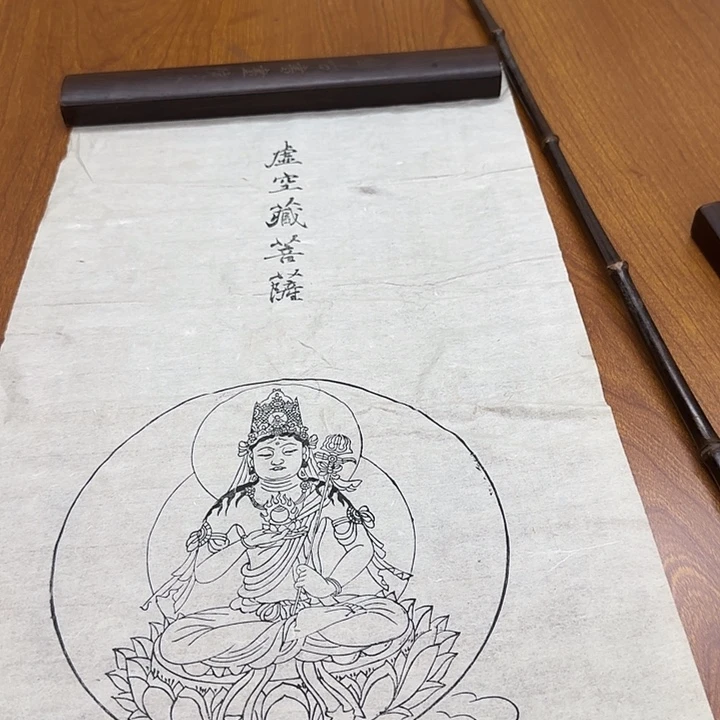 虚空藏菩薩